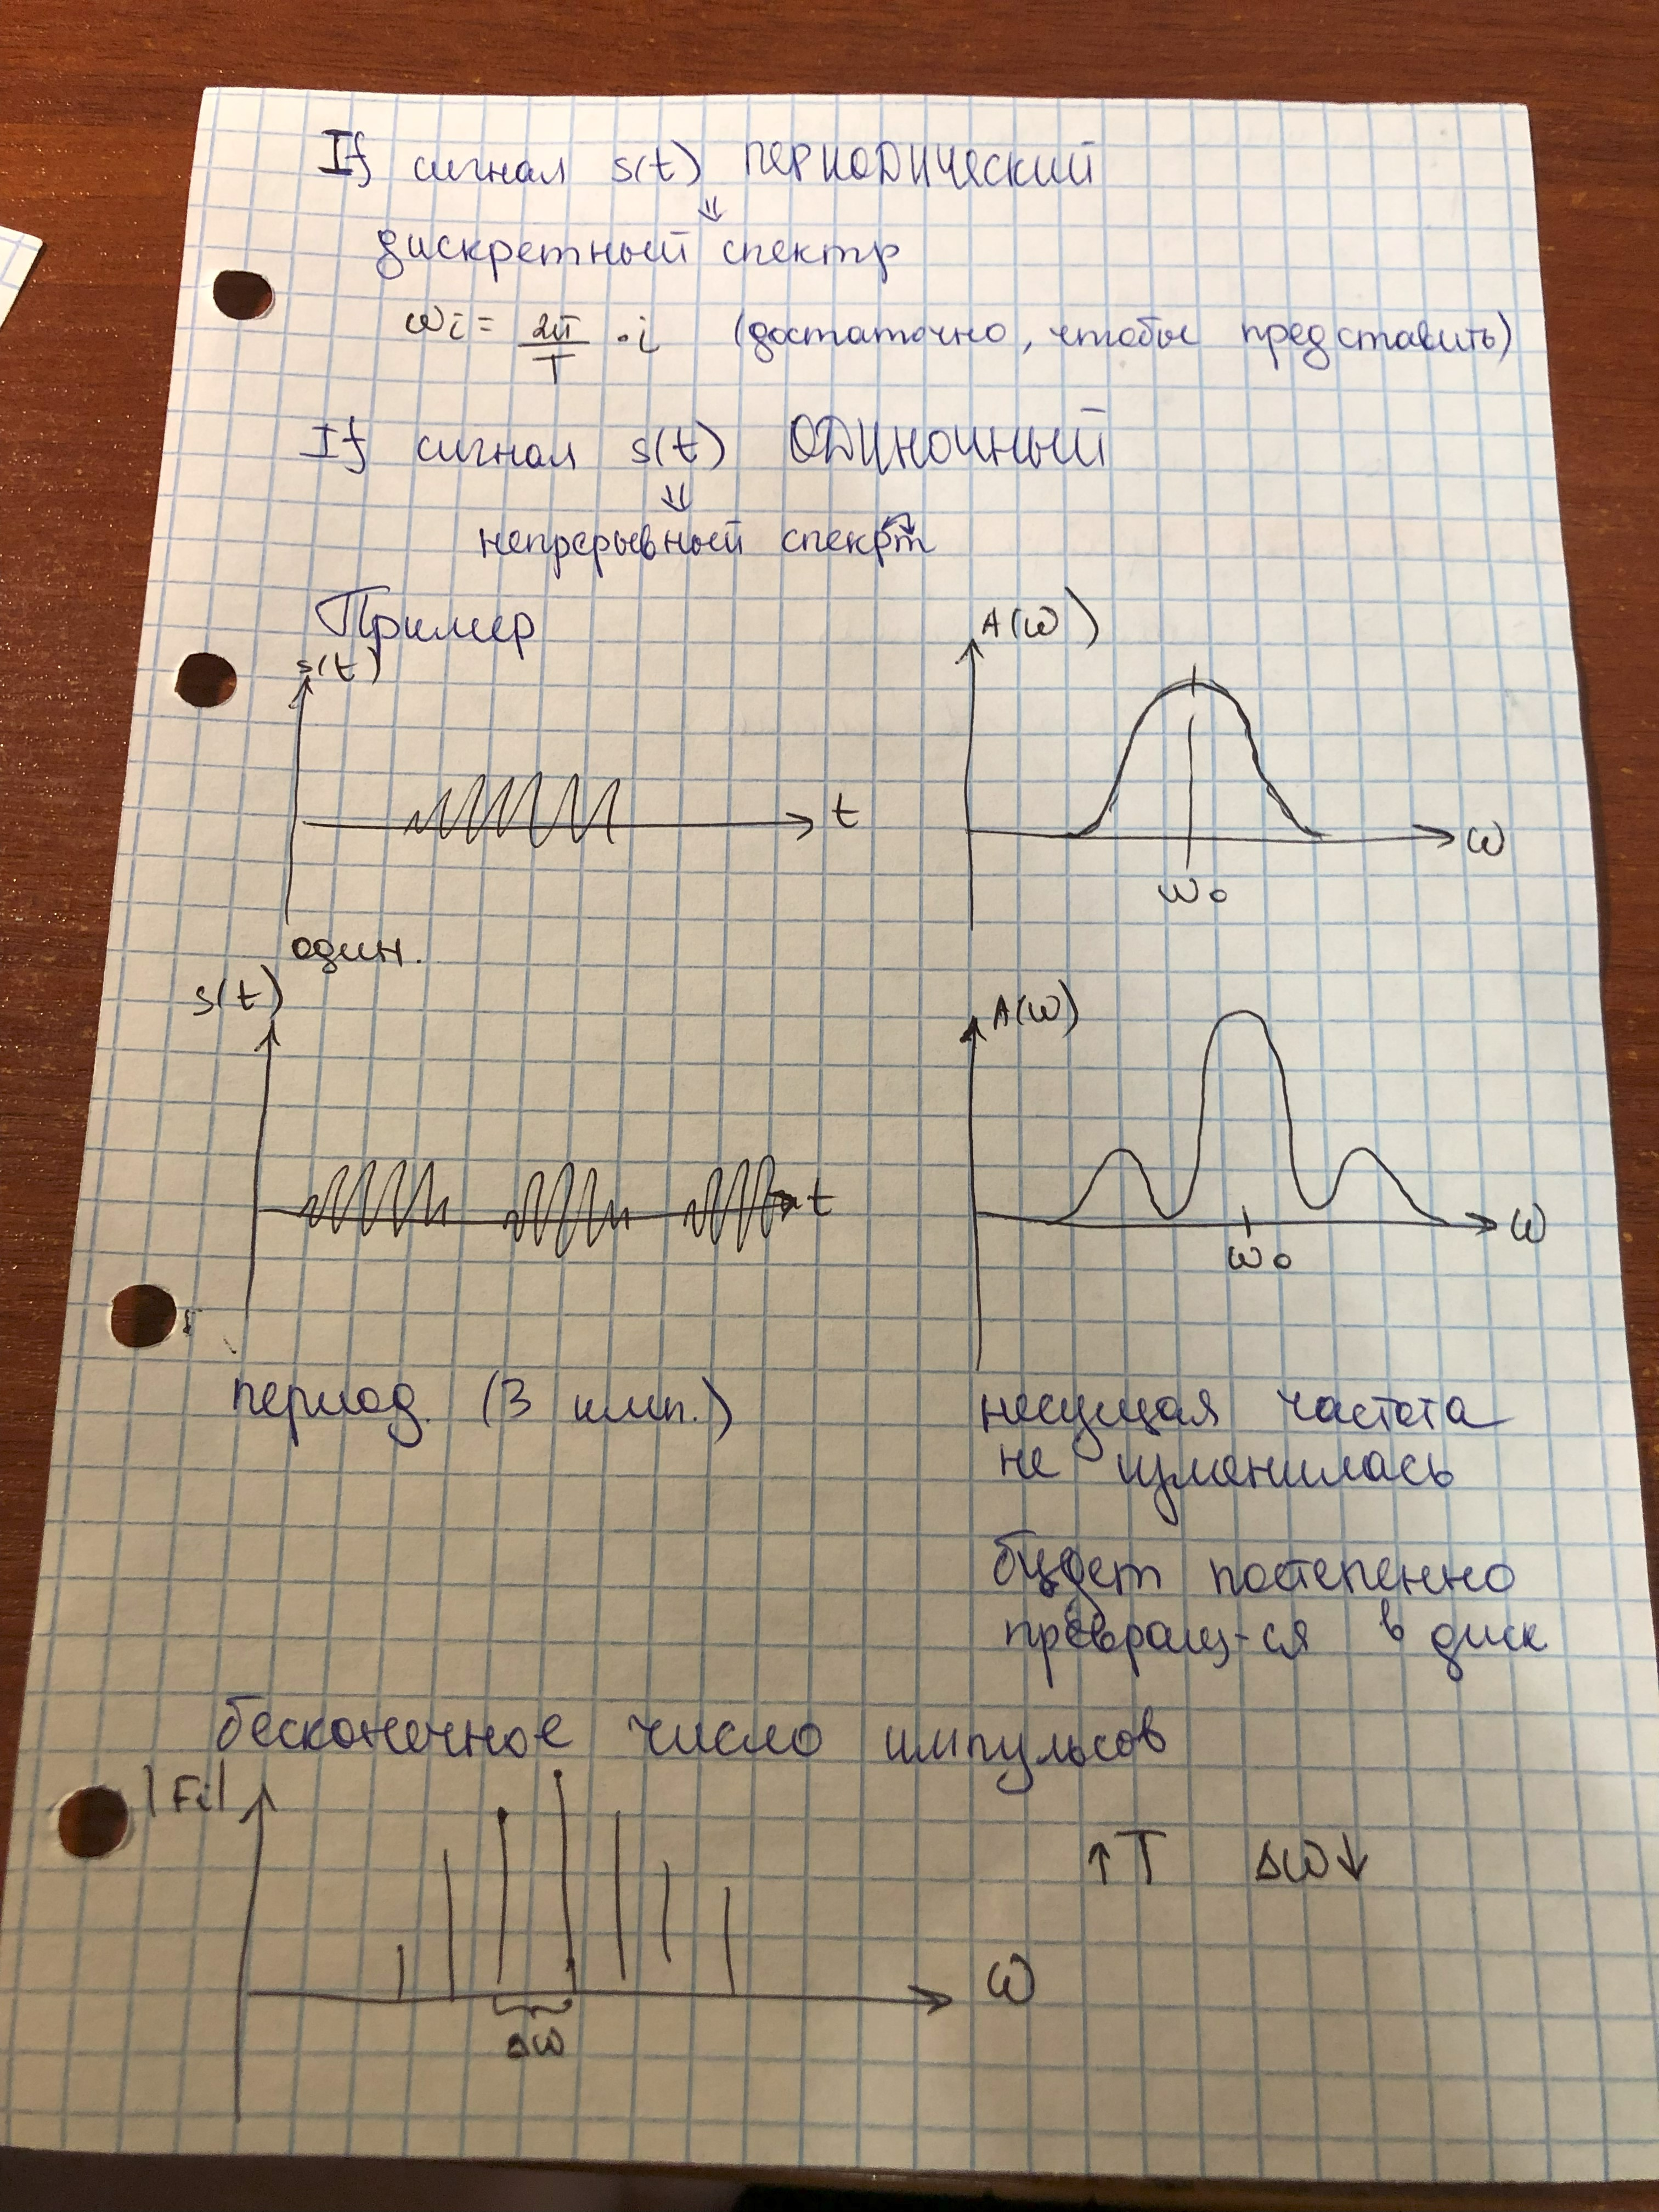 If сигнал s(t) ПЕРИОДИЧЕСКИЙ
⇓
дискретный спектр
ωi = 2π/T · i (достаточно, чтобы представить)
If сигнал s(t) ОДИНОЧНЫЙ
⇓
непрерывный спекрт
Пример
s(t)
t
один.
A(ω)
ω
ω0
s(t)
t
период. (3 имп.)
A(ω)
ω
ω0
несущая частота
не изменилась
будет постепенно
превращ-ся в диск
бесконечное число импульсов
|Fi|
ω
Δω
↑T Δω↓